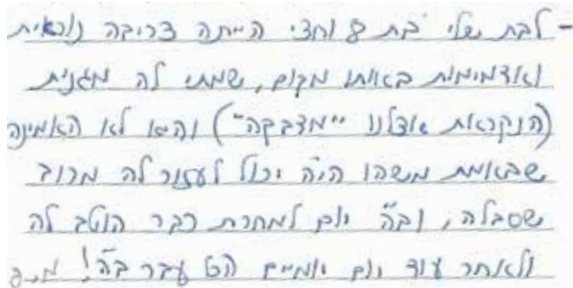 - לבת שלי בת 8 וחצי הייתה צריבה נוראית
ואדמימות באותו מקום, שמתי לה מגנית
(הנקראת אצלנו "מדבקה") והיא לא האמינה
שבאמת משהו היה יכול לעזור לה מרוב
שסבלה, וב"ה יום למחרת כבר הוטב לה
ולאחר עוד יום יומיים הכל עבר ב"ה!